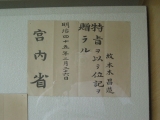 故本木昌造
特旨ヲ以テ位記ヲ
贈ラル
明治四十五年二月二十六日
宮内省